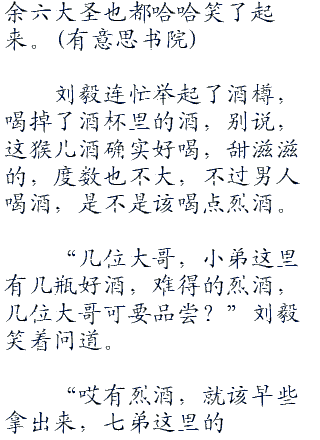 余六大圣也都哈哈笑了起
来。(有意思书院)
刘毅连忙举起了酒樽，
喝掉了酒杯里的酒，别说，
这猴儿酒确实好喝，甜滋滋
的，度数也不大，不过男人
喝酒，是不是该喝点烈酒。
“几位大哥，小弟这里
有几瓶好酒，难得的烈酒，
几位大哥可要品尝？” 刘毅
笑着问道。
“哎有烈酒，就该早些
拿出来，七弟这里的